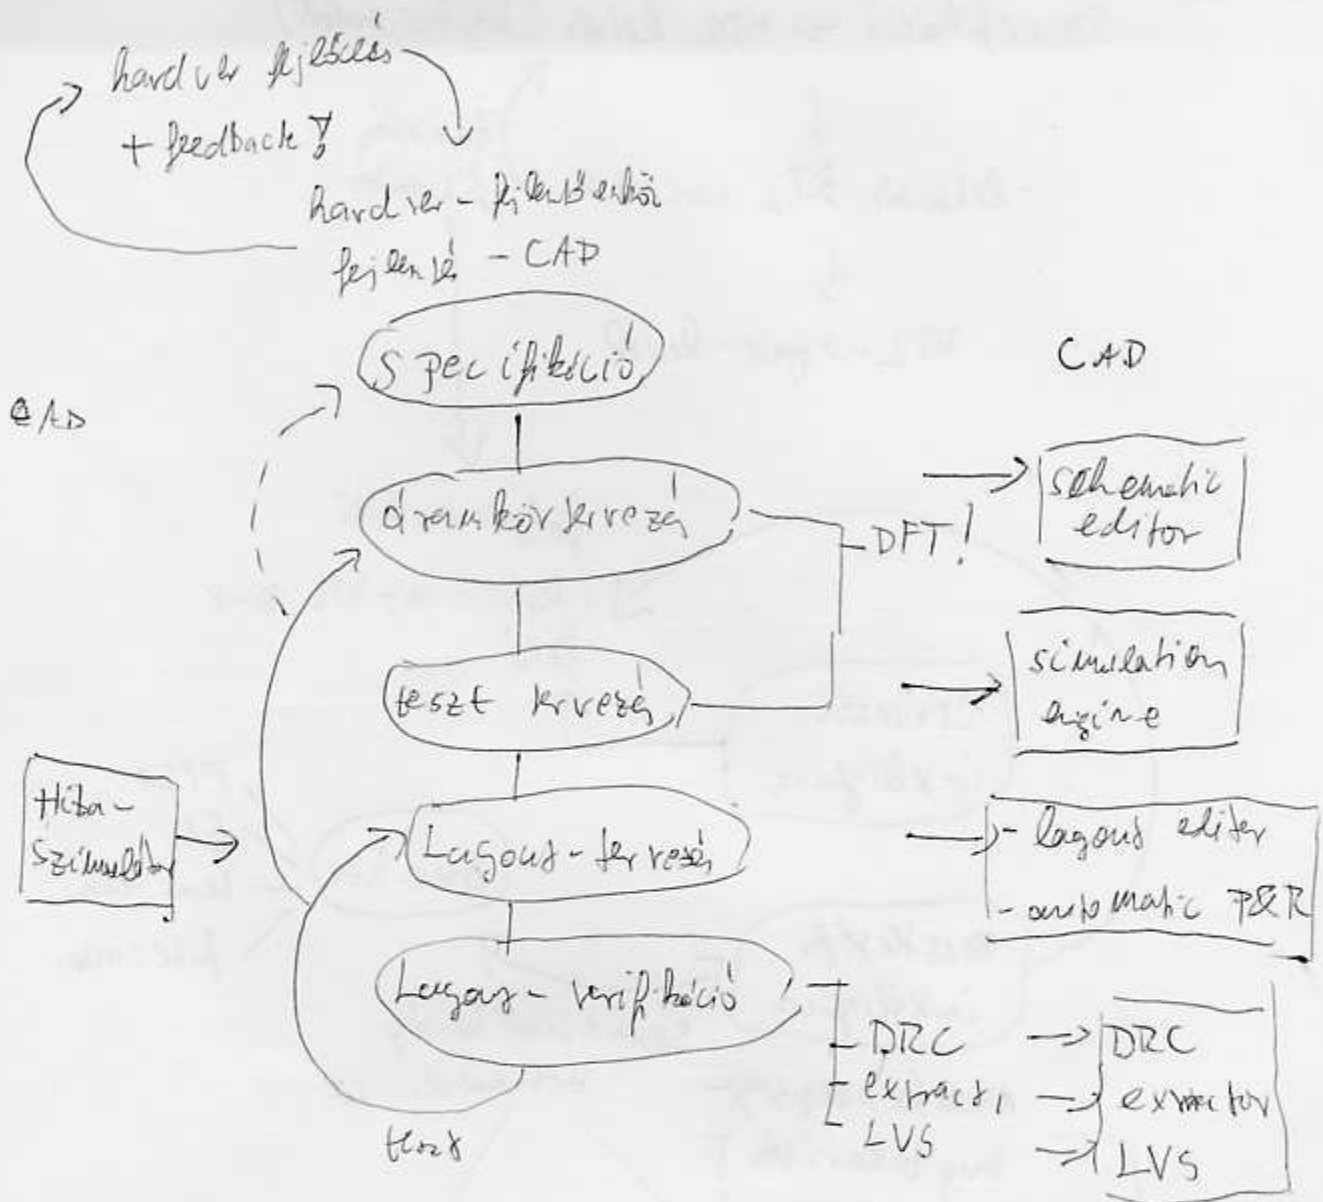 hardver fejlesztés
+ feedback!
hardver-
fejlesztés - CAD
Specifikáció
CAD
CAD
áramkörtervezés
DFT!
schematic
editor
teszt tervezés
simulation
engine
Hiba-
szimulátor
Layout-tervezés
- layout editor
- automatic P&R
Layout-verifikáció
DRC
extract,
LVS
DRC
extractor
LVS